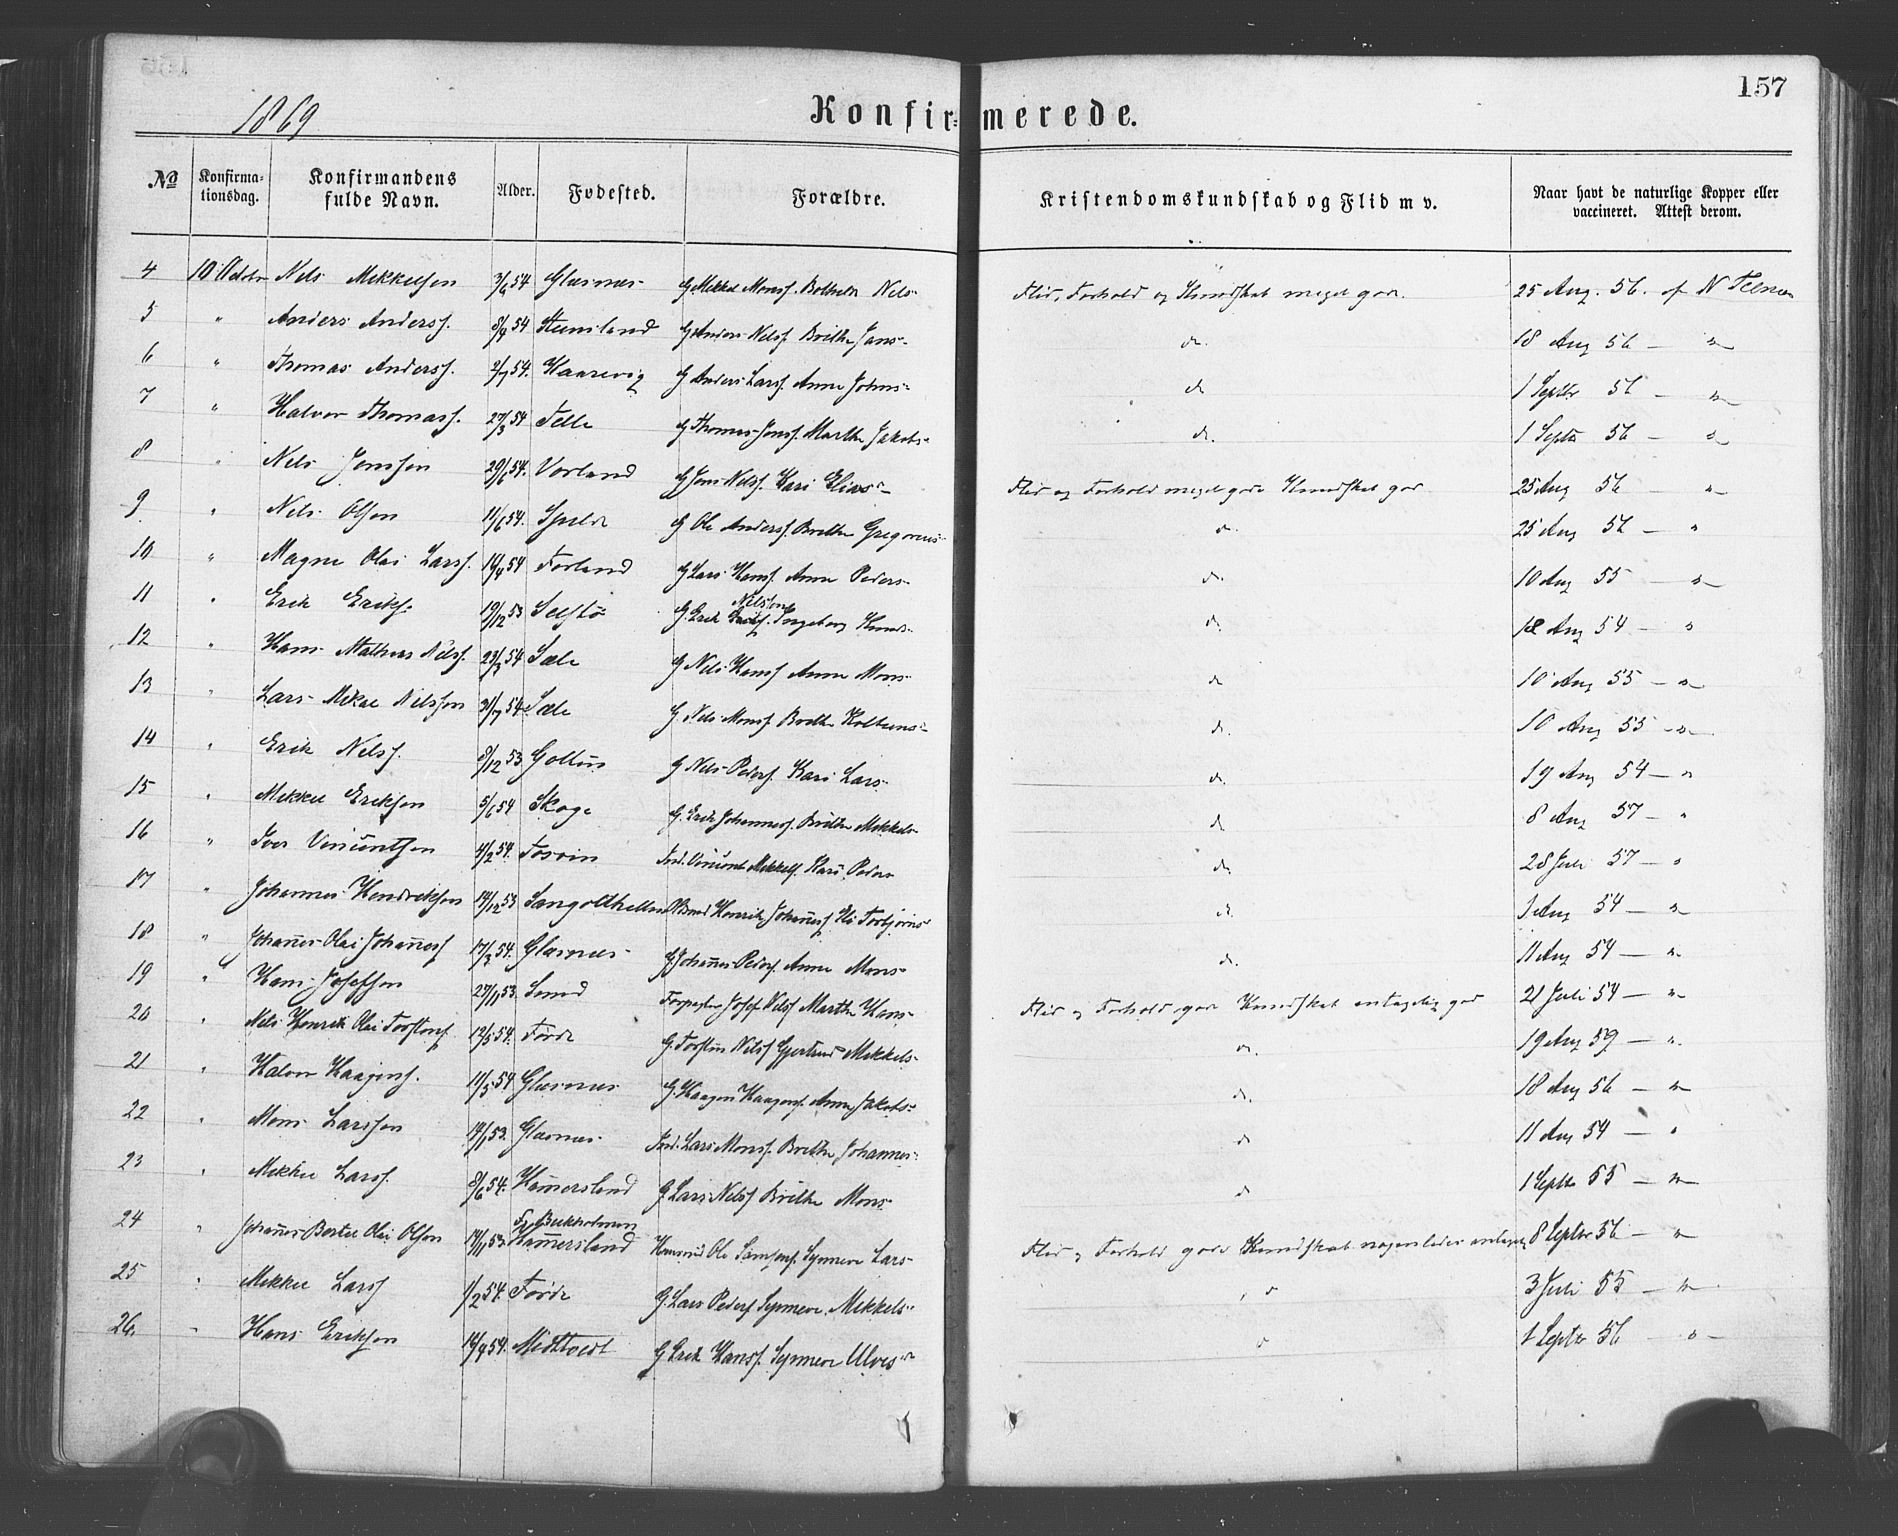 157
1869
Konfirmerede.
No Konfirmationsdag. Konfirmandens fulde Navn. Alder. Fødested. Forældre. Kristendomskundskab og Flid m v. Naar havt de naturlige Kopper eller vaccineret. Attest derom.
4 10 Octobr Nils Mikkelsen 3/6 54 Glæsnæs G Mikkel Monss. Nils- Flid, Forhold og Kundskab meget god. 25 Aug. 56. af N
5 " Anders Anderss. 8/9 54 Steensland G Anders Nilss. Brithe Jans- do. 18 Aug 56 — "
6 " Thomas Anderss. 2/7 54. Kaarevig G Anders Larss. Anne Johns- do 1 Septbr 56 — "
7 " Halvor Thomass. 27/3 54 Telle G Thomas Jonss. Marthe Jakobs- do. 1 Septbr 56 — "
8 " Nils Jonsson 29/6 54. Vorland G Jon Nilss. Kari Elias- Flid og Forhold meget god Kundskab god 25 Aug 56 "
9 " Nils Olsen 11/6 54. Spilde G Ole Anderss. Brithe Gregorius- do. 25 Aug 56 — "
10 " Magne Olai Larss. 14/4 54 Forland G Lars Hanss. Anne Peders- do. 10 Aug 55 — "
11 " Erik Eriks. 19/12 53 Selstø G. Erik Nilsson Ingeborg Knuds- do. 18 Aug 54 — "
12 " Hans Mathias Nilss. 23/3 54 Sæle G Nils Hanss Anne Mons- do 10 Aug 55 — "
13 " Lars Mikal Nilsson 31/7 54 Sæle G. Nils Monss. Brithe Kolbens- do. 10 Aug 55 — "
14 " Erik Nilss. 8/12 53 Goltun G Nils Peders. Kari Lars- do. 19 Aug 54 — "
15 " Mikkel Eriksen 5/6 54 Skoge G. Erik Johanness. Brithe Mikkels- do. 8 Aug 57 — "
16 " Iver Vincentsen 4/2 54. Tosvin Ind. Vincent Mikkels. Kari Peders do. 28 Juli 57 — "
17 " Johannes Hendriksen 14/12 53 Sangolthellen Henrik Johanness Eli Torbjørns- do. Aug 54 — "
18 " Johannes Olai Johanness 17/3 54. Glæsnæs G Johannes Peders. Anne Mons- do. 11 Aug 54 — "
19 " Hans Josefsen 27/11 53. Sund Josef Nilss Marthe Hans- Flid og Forhold god Kundskab antagelig god 21 Juli 54 — "
20 " Nils Henrik Olai Torstens 12/5 54. Førde G. Torsten Nilss Gjertrud Mikkels- do. 19 Aug 59 — "
21 " Halvor Haagens. 11/5 54 Glæsnæs G. Haagen Haagens. Anne Jakobs- do. 18 Aug 56 — "
22 " Mons Larssen 14/1 53. Glæsnæs Ind. Lars Monss. Brithe Johannes- do 11 Aug 54 — "
23 " Mikkel Larss. 8/6 54. Hamersland G Lars Nilss Brithe Mons- do 1 Septbr 55 — "
24 " Johannes Bertel Olai Olsen 14/11 53. Hamersland Ole Simens. Synneve Lars- Flid og Forhold god Kundskab nogenledes antagelig 8 Septbr 56 — "
25 " Mikkel Larss 1/2 54. Førde G. Lars Peders Synneve Mikkels- " 3 Juli 55 — "
26. " Hans Eriksen 14/4 54. Midttvedt G Erik Hanss. Synneve Ulves- " 1 Septbr 56 — "